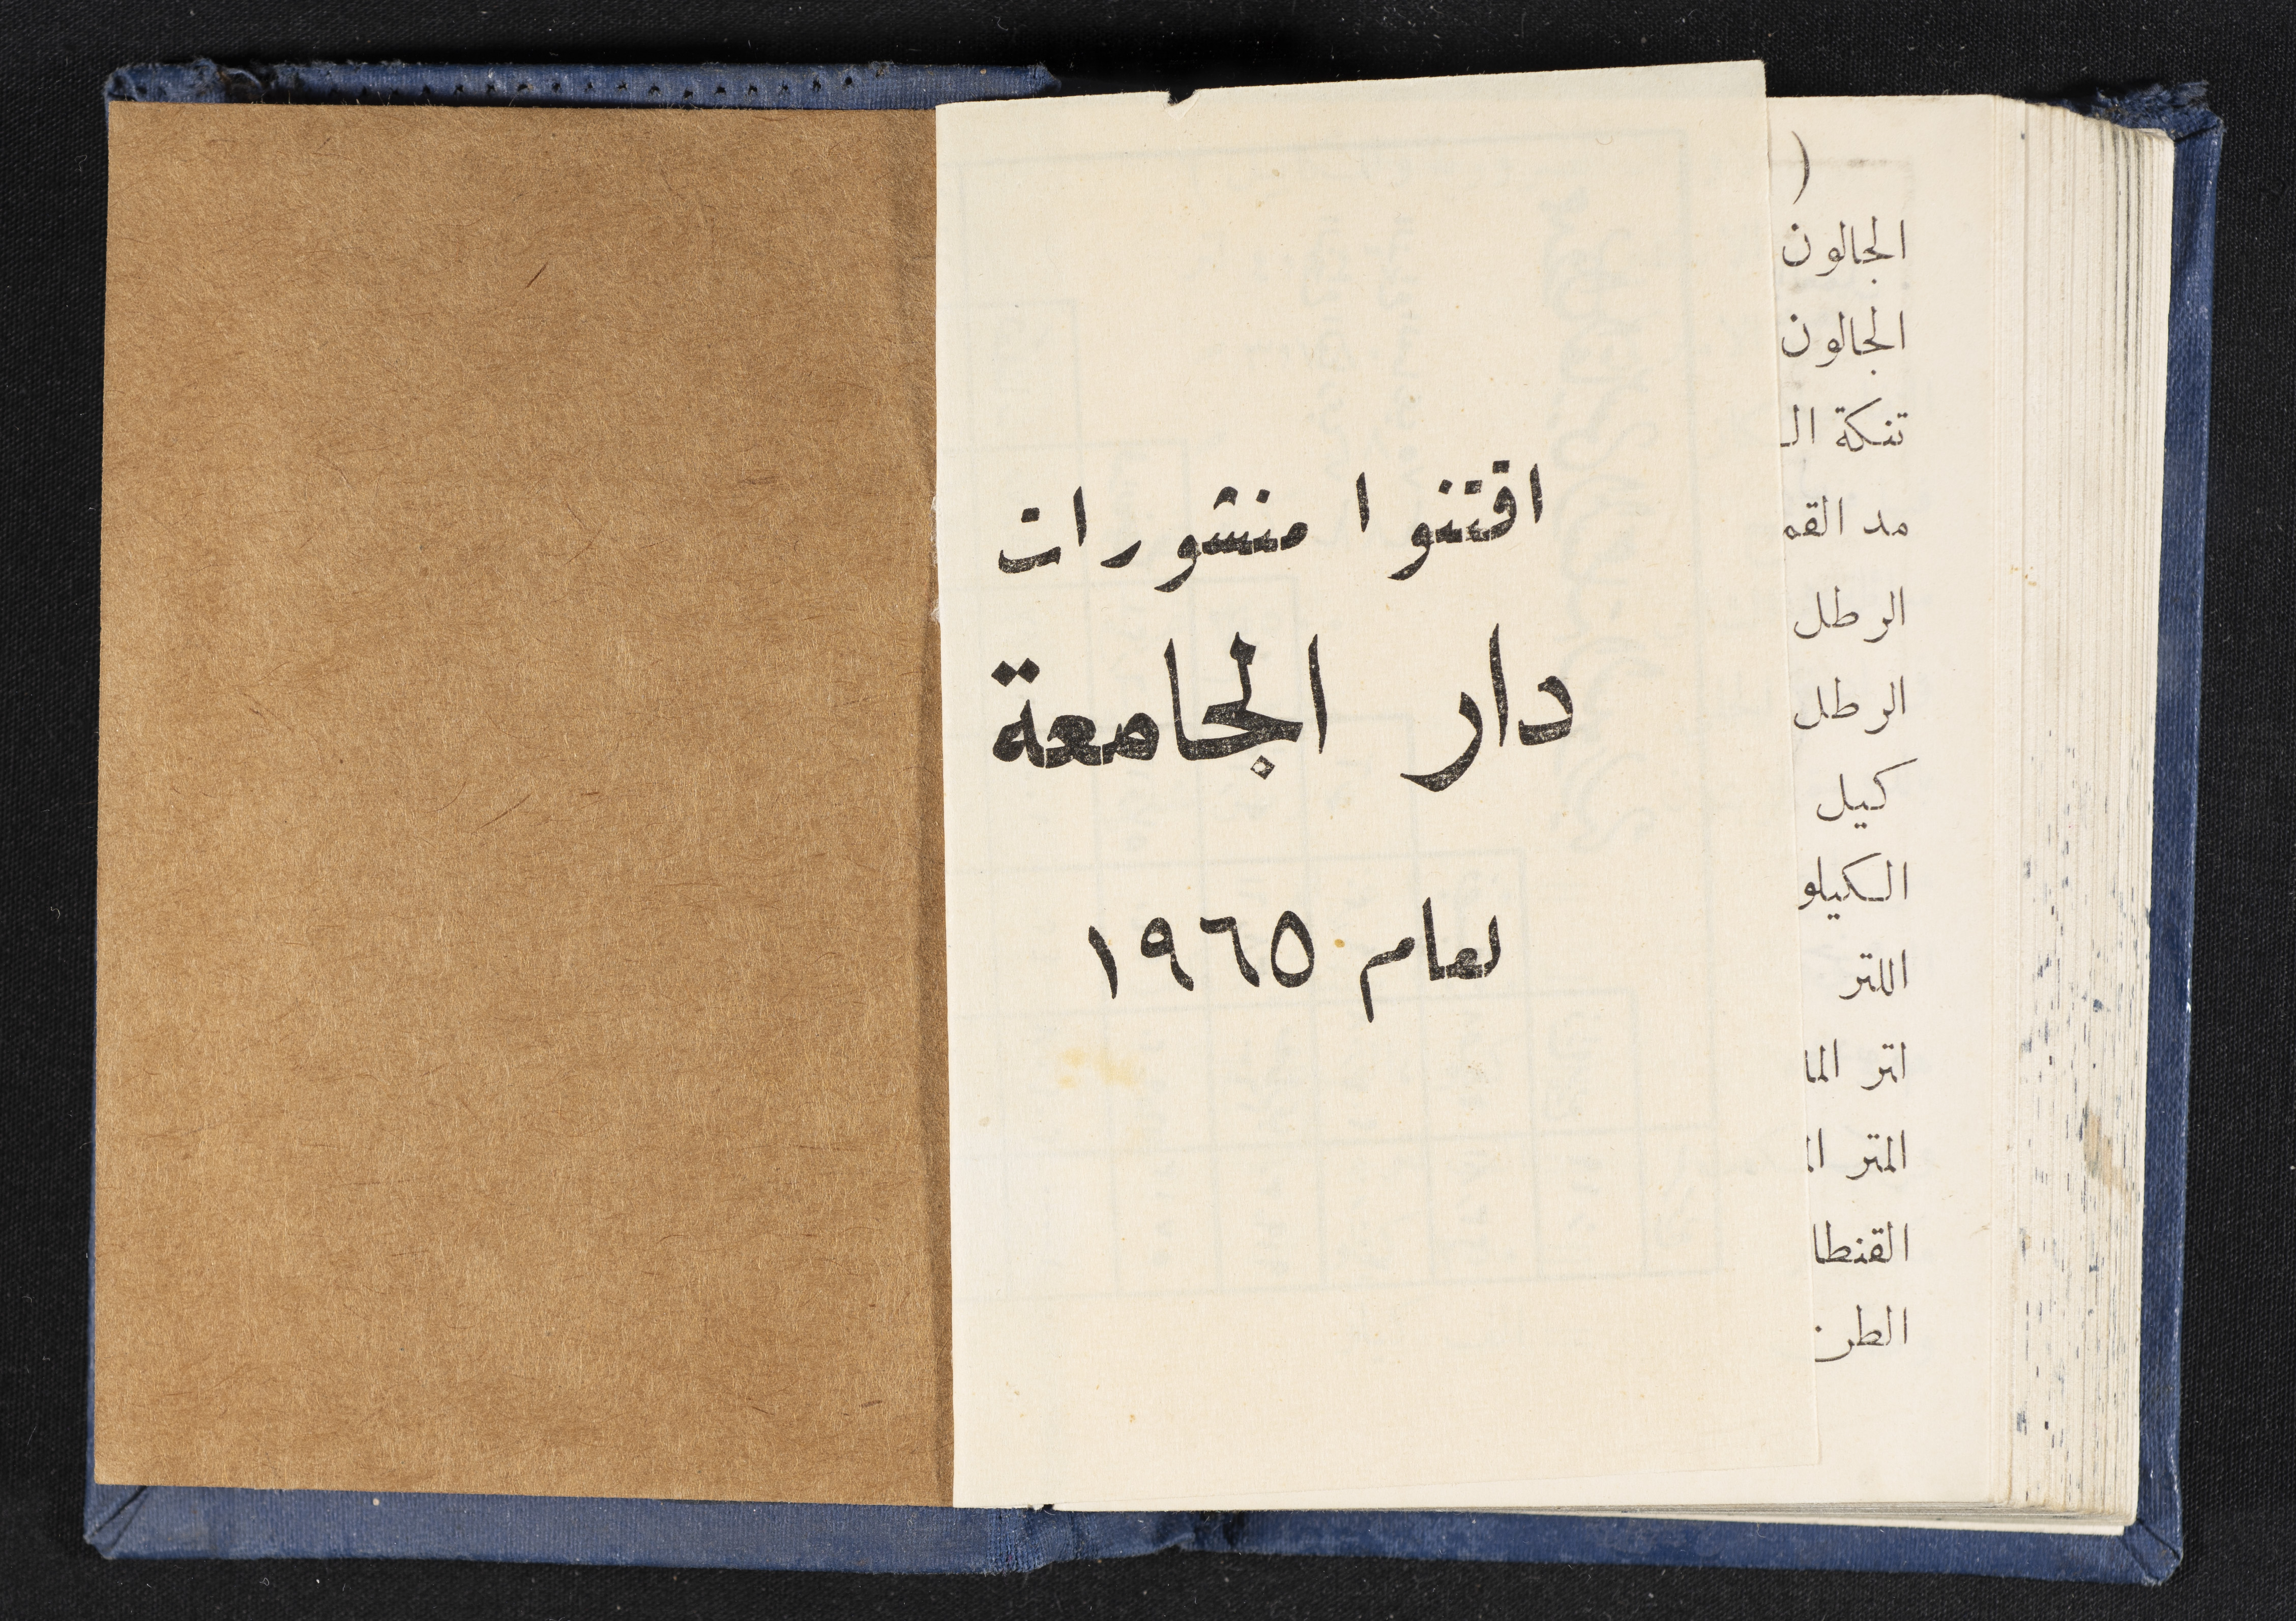 اقتنوا منشورات
دار الجامعة
لعام ١٩٦٥
(
الجالون
الجالون
تنكة
مد
الرطل
الرطل
كيل
الكيلو
اللتر
لتر
المتر
الطن